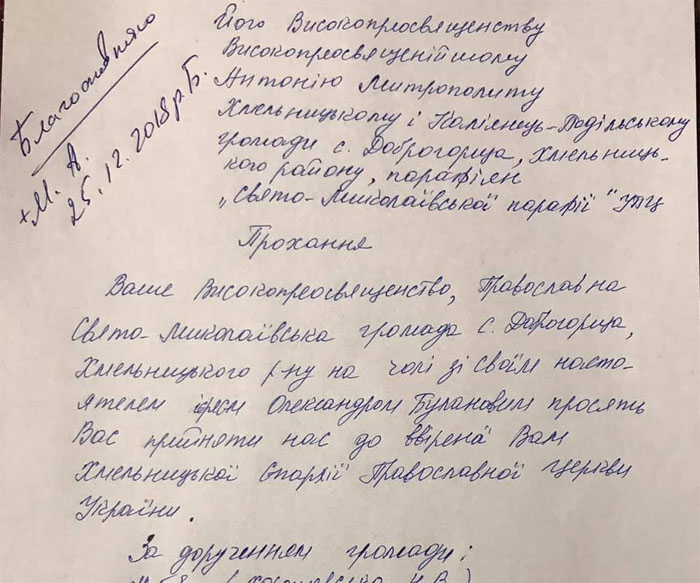 Благословляю
+М. А.
25.12.2018 р.Б.
Його Високопреосвященству
Високопреосвященнійшому
Антонію Митрополиту
Хмельницькому і Кам'янець-Подільському
громади с. Доброгорща, Хмельниць-
кого району, парафіян
„Свято-Миколаївської парафії" УПЦ
Прохання
Ваше Високопреосвященство, Православна
Свято-Миколаївська громада с. Доброгорща,
Хмельницького р-ну на чолі зі своїм насто-
ятелем Олександром Булановим просять
Вас прийняти нас до ввіреної Вам
Хмельницької Єпархії Православної Церкви
України.
За дорученням громади: